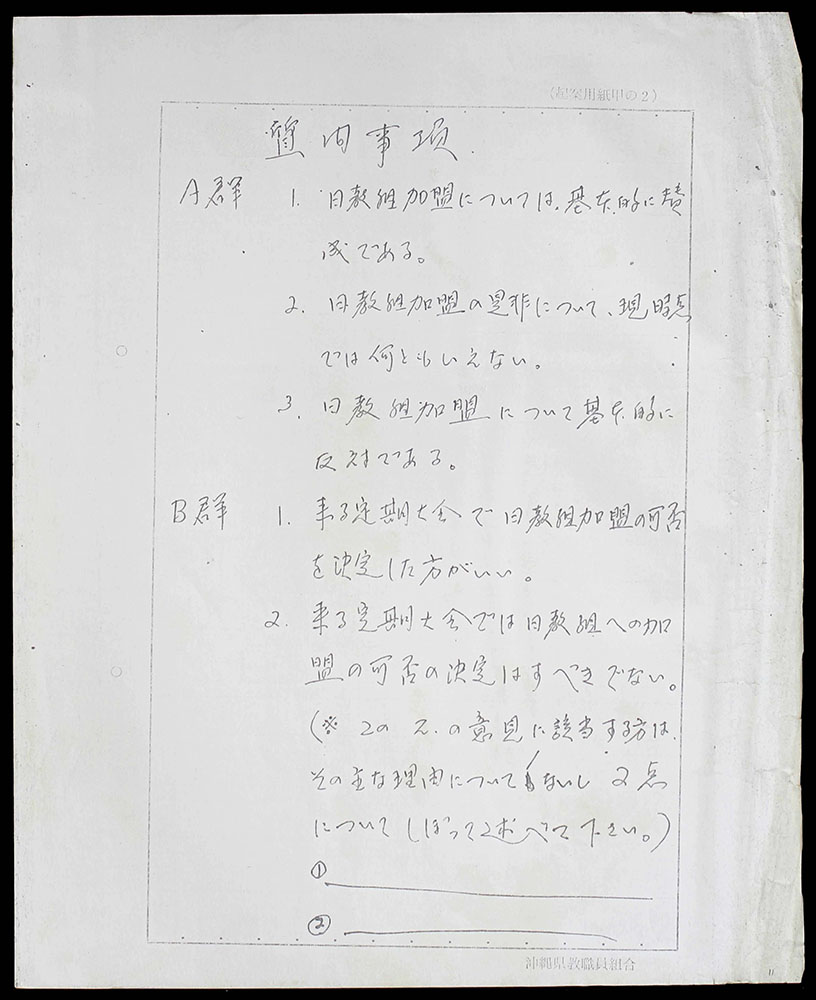 (起案用紙甲の2)
質問事項
A群 1. 日教組加盟については、基本的に賛
成である。
2. 日教組加盟の是非について、現時点
では何ともいえない。
3. 日教組加盟について基本的に
反対である。
B群 1. 来る定期大会で日教組加盟の可否
を決定した方がいい。
2. 来る定期大会では日教組への加
盟の可否の決定はすべきでない。
(※ 2の の意見に該当する方は、
その主な理由について ないし 2点
について しぼって述べて下さい。)
①
②
沖縄県教職員組合